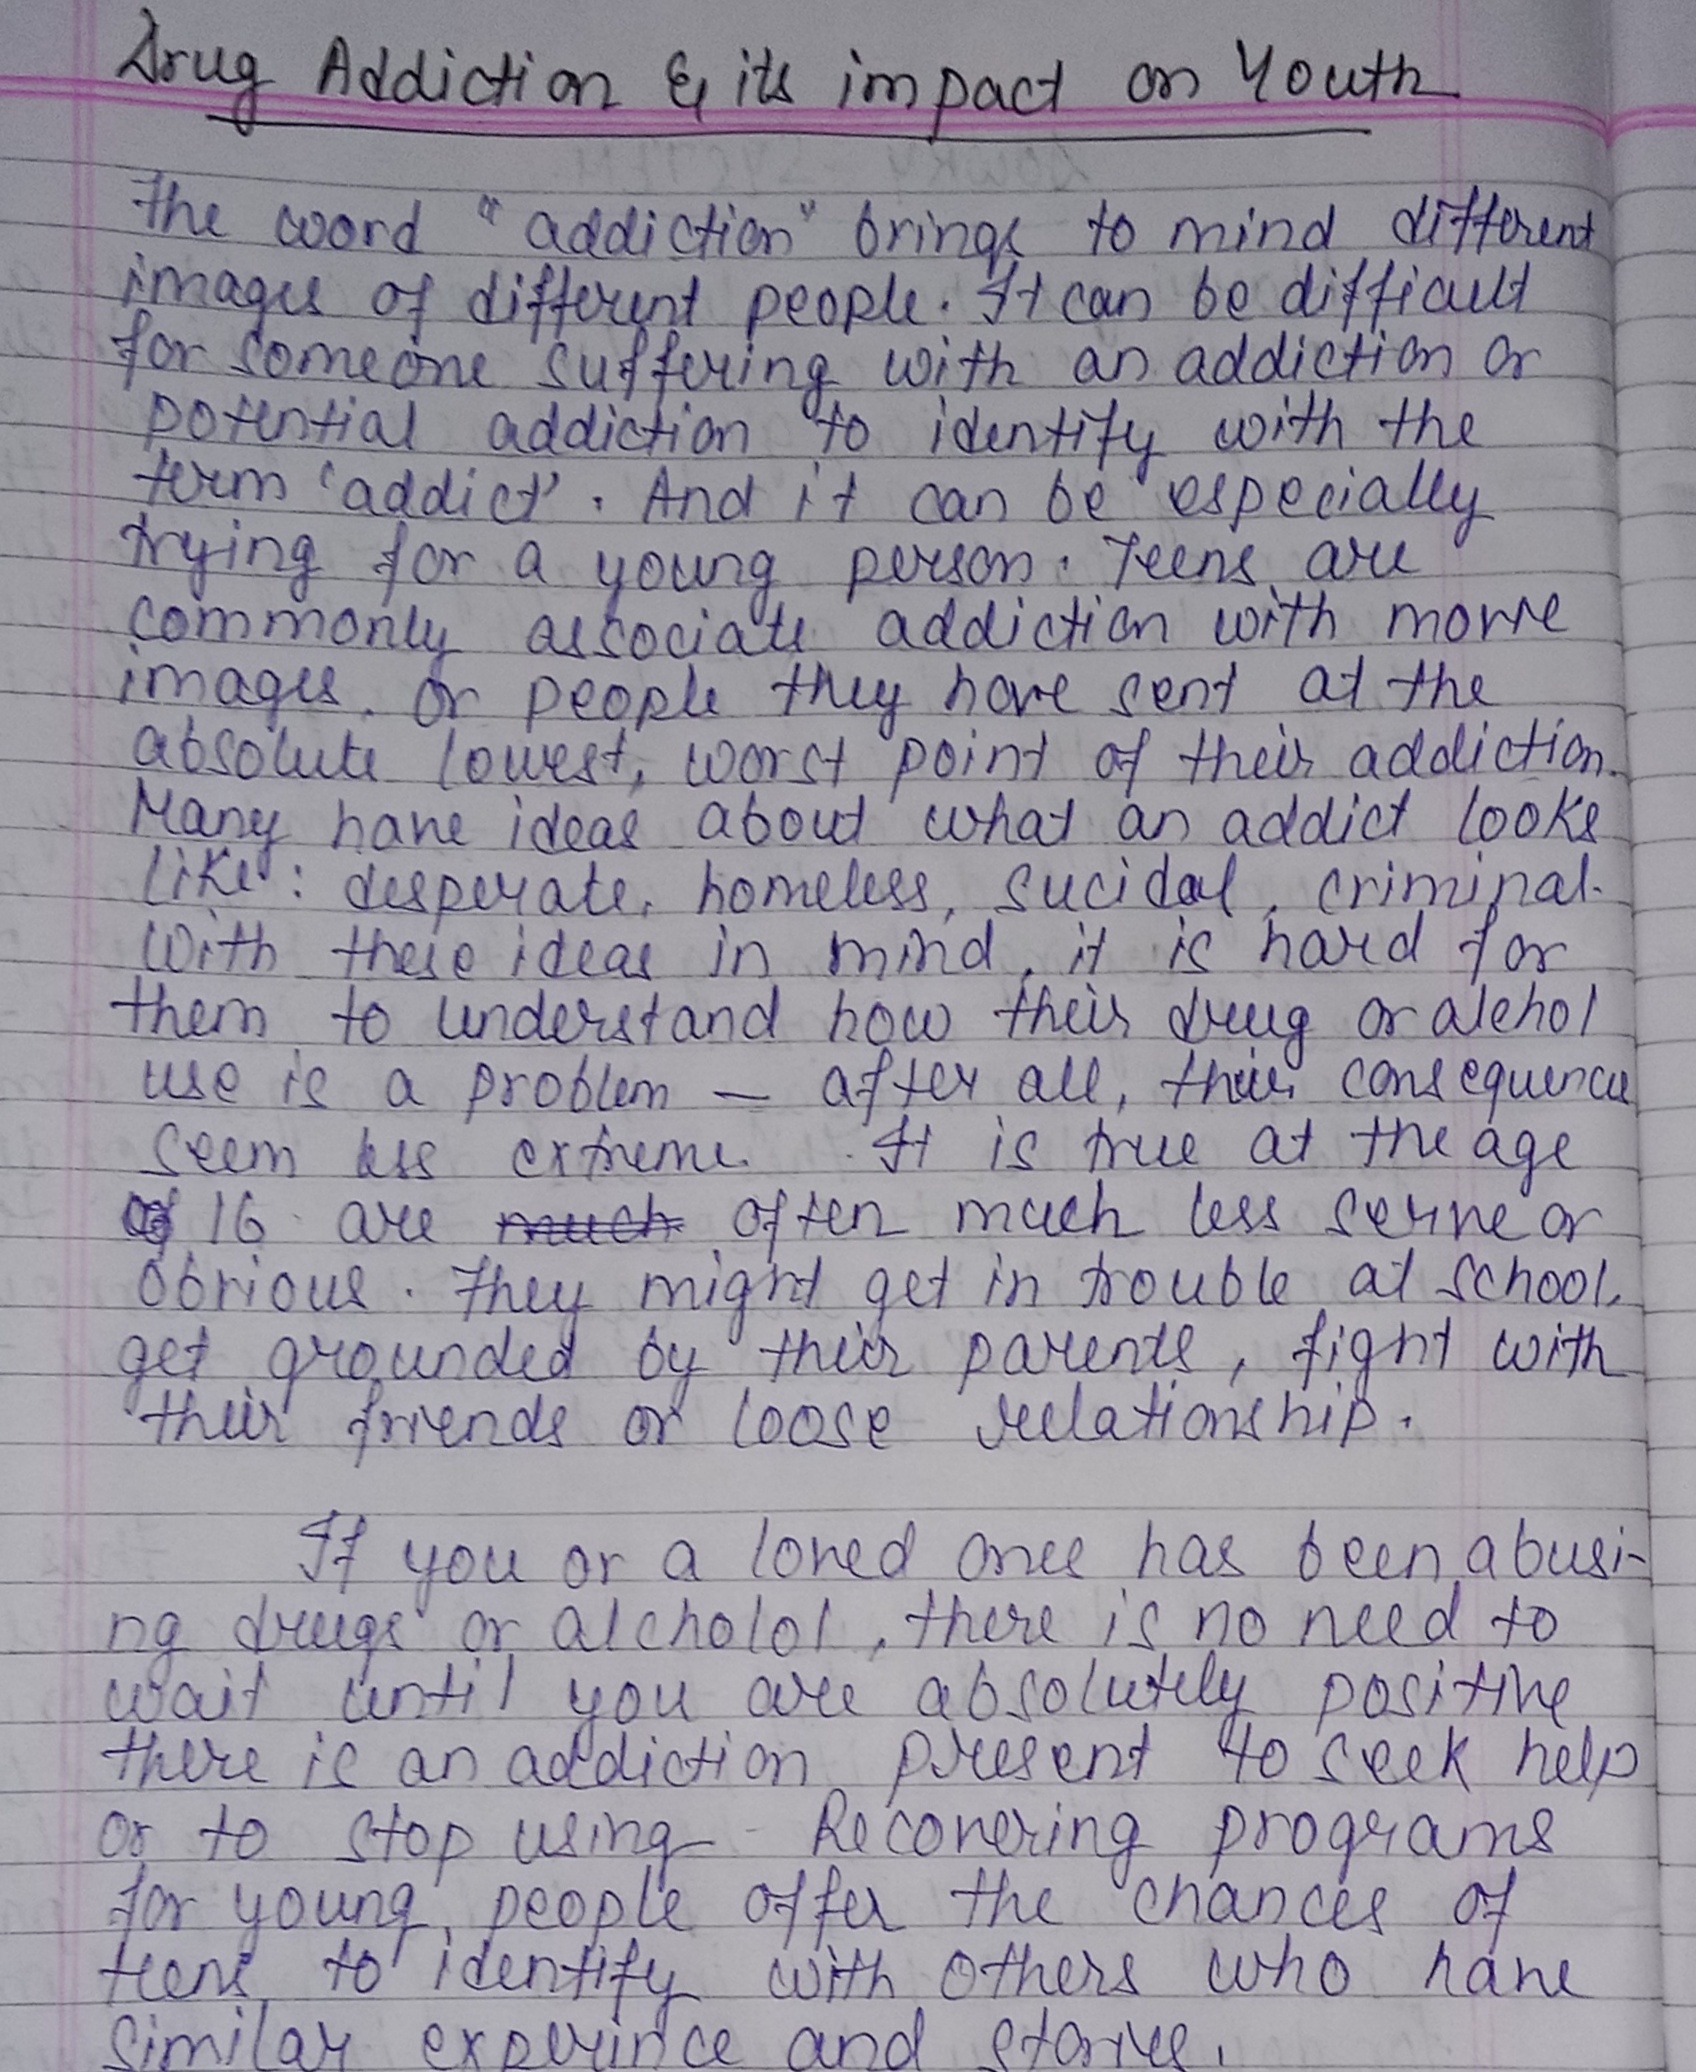 Drug Addiction & its impact on Youth
The word "addiction" brings to mind different
images of different people. It can be difficult
for someone suffering with an addiction or
potential addiction to identify with the
term 'addict'. And it can be especially
trying for a young person. Teens are
commonly associate addiction with movie
images, or people they have sent at the
absolute lowest, worst point of their addiction.
Many have ideas about what an addict looks
like: desperate, homeless, sucidal, criminal.
With these ideas in mind, it is hard for
them to understand how their drug or alchol
use is a problem — after all, their consequences
seem less extreme. It is true at the age
of 16 are much often much less serive or
obvious. They might get in trouble at school,
get grounded by their parents, fight with
their friends or loose relationship.
If you or a loved ones has been abusi-
ng drugs or alcholol, there is no need to
wait until you are absolutely positive
there is an addiction present to seek help
or to stop using. Recovering programs
for young people offer the chances of
teens to identify with others who have
similar experince and stories.